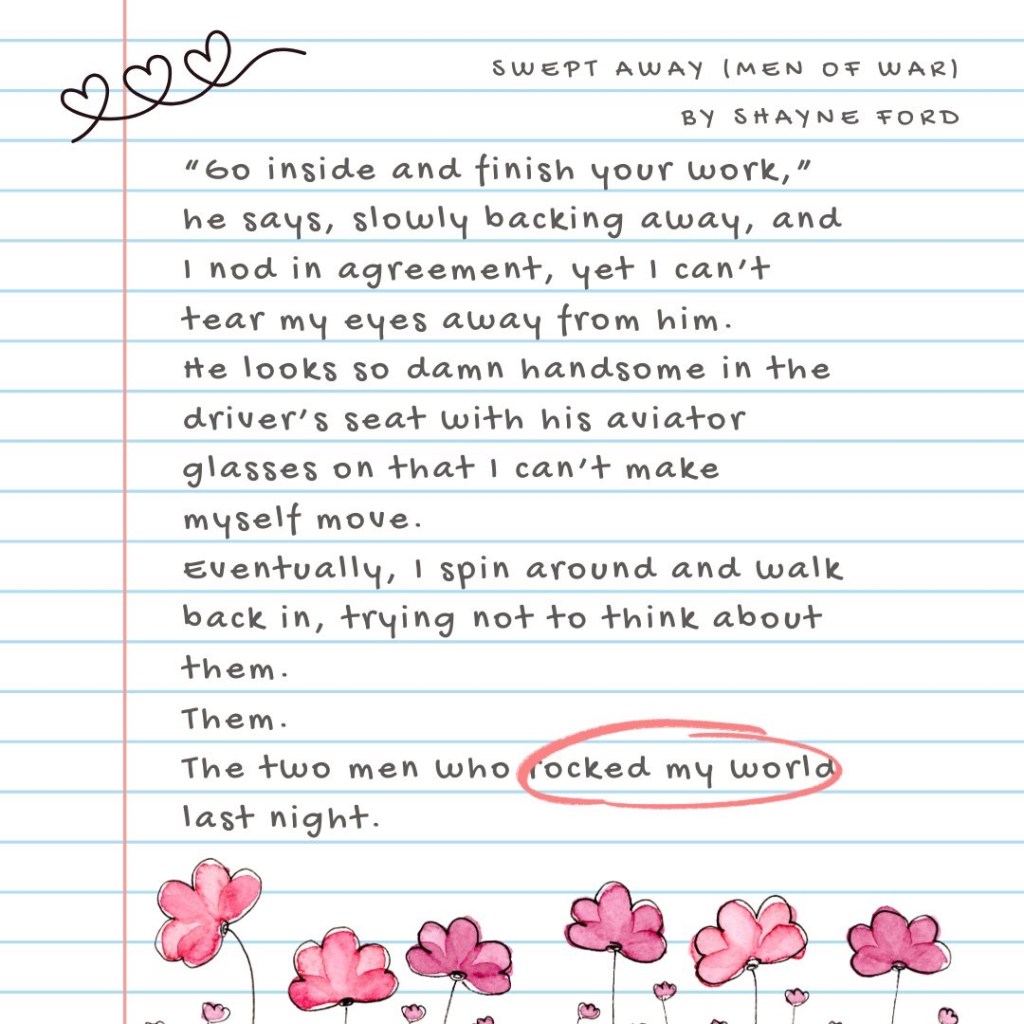 SWEPT AWAY (MEN OF WAR)
BY SHAYNE FORD
"Go inside and finish your work,"
he says, slowly backing away, and
I nod in agreement, yet I can't
tear my eyes away from him.
He looks so damn handsome in the
driver's seat with his aviator
glasses on that I can't make
myself move.
Eventually, I spin around and walk
back in, trying not to think about
them.
Them.
The two men who rocked my world
last night.